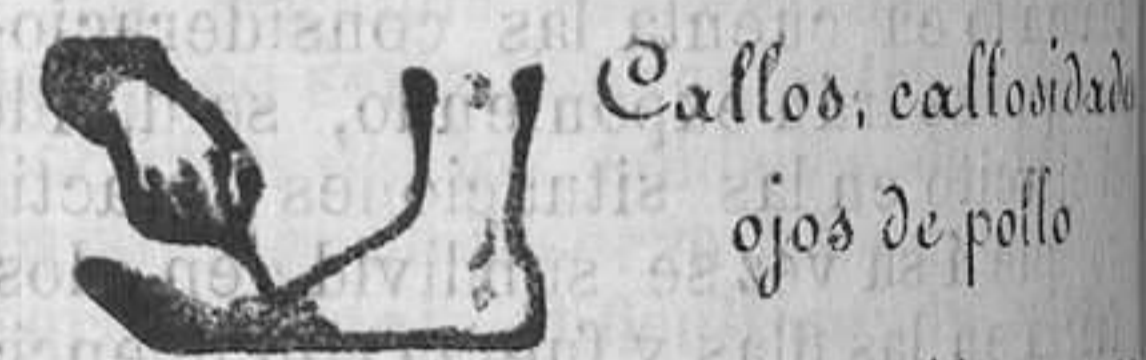 Callos, callosidade
ojos de pollo